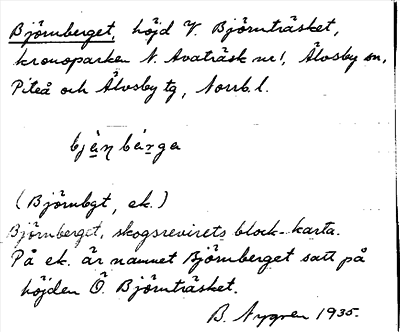 Björnberget, höjd V. Björnträsket,
kronoparken N. Avaträsk nr 1, Älvsby sn,
Piteå och Älvsby tg, Norrb. l.
bjän bärga
(Björnbgt, ek.)
Björnberget, skogsrevirets block-karta.
På ek. är namnet Björnberget satt på
höjden Ö. Björnträsket.
B. Nygren 1935.